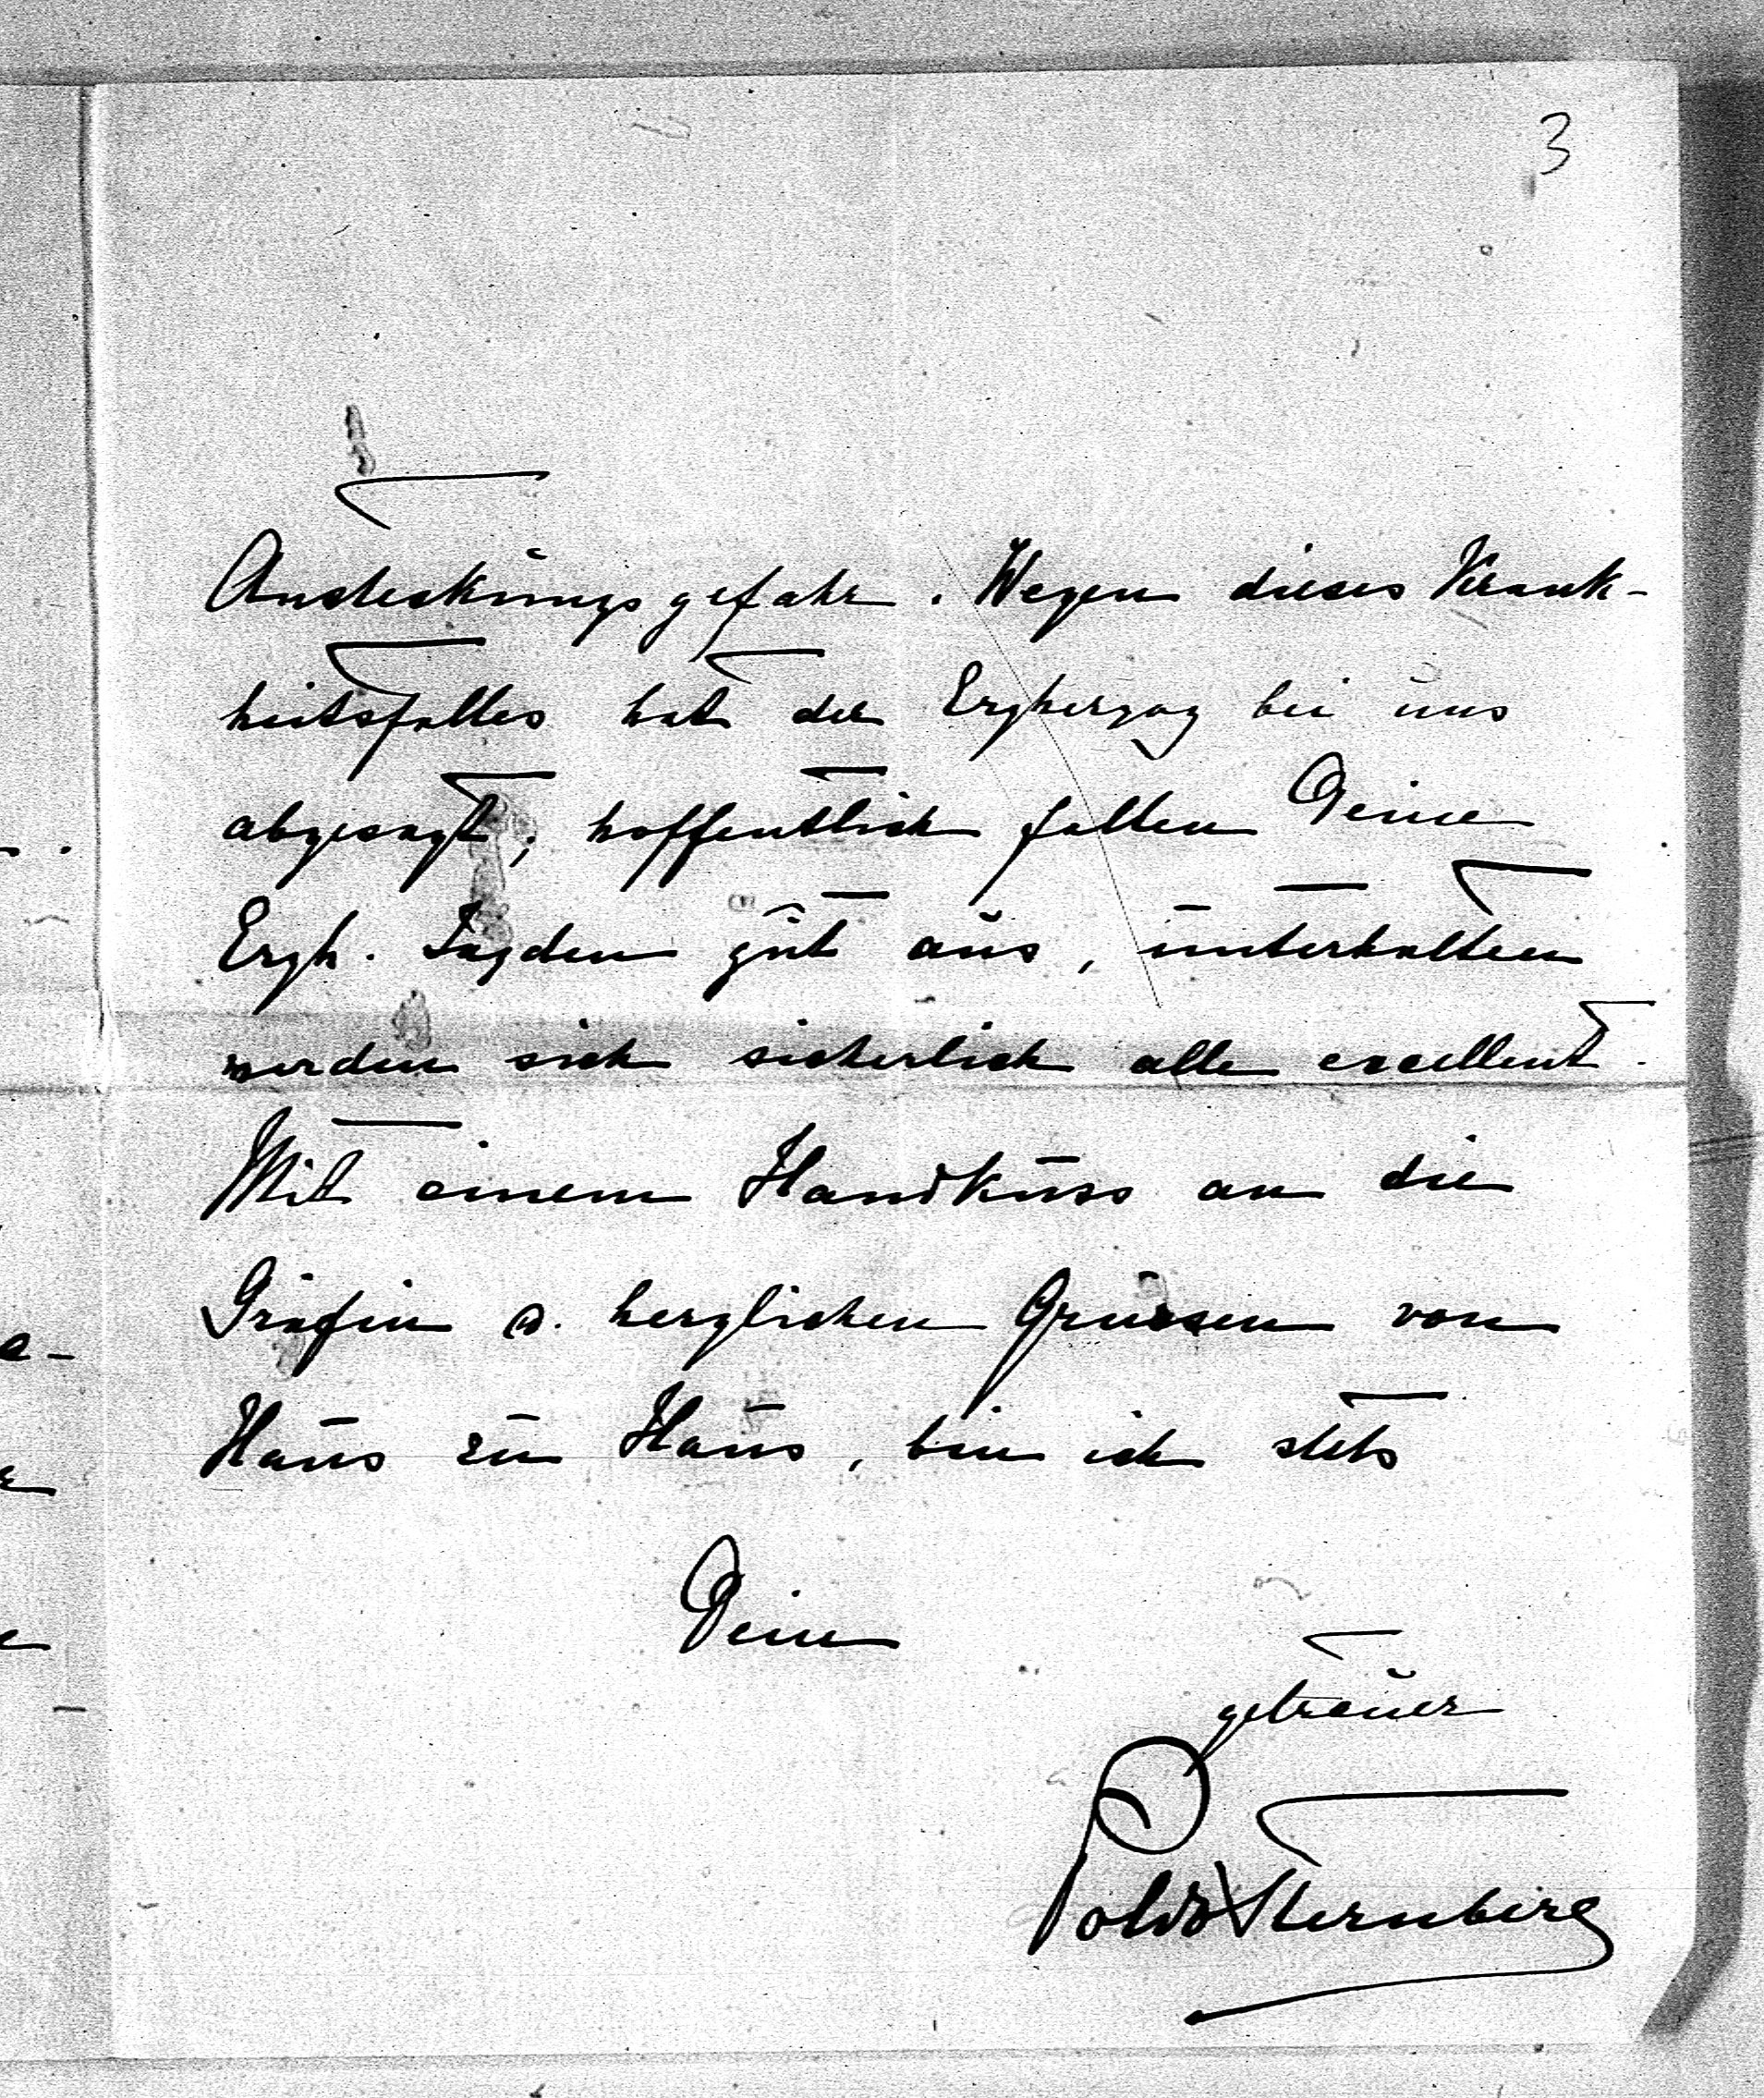 3
Ansteckungsgefahr. Wegen dieses Krank-
heitsfalles hat der Erzherzog bei uns
abgesagt; hoffentlich fallen Deine
Erzh. Jagden gut aus, unterhalten
werden sich sicherlich alle excellent.
Mit einem Handkuss an die
Gräfin u. herzlichen Grüssen von
Haus zu Haus, bin ich stets
Dein
getreuer
Poldo Sternberg